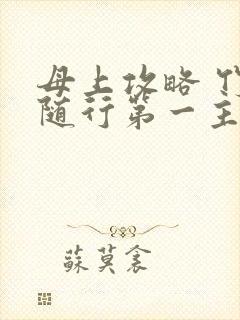 母上攻略
随行第一主
蘇莫衾